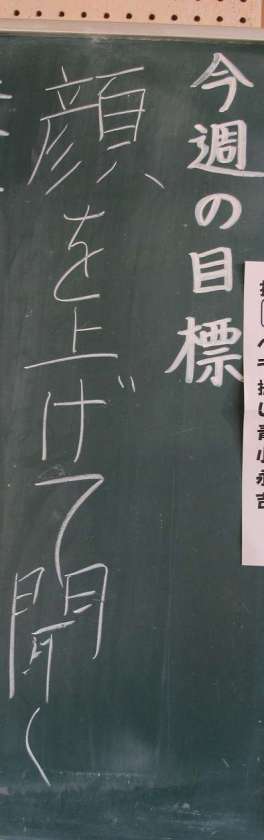 今週の目標
顔を上げて聞く